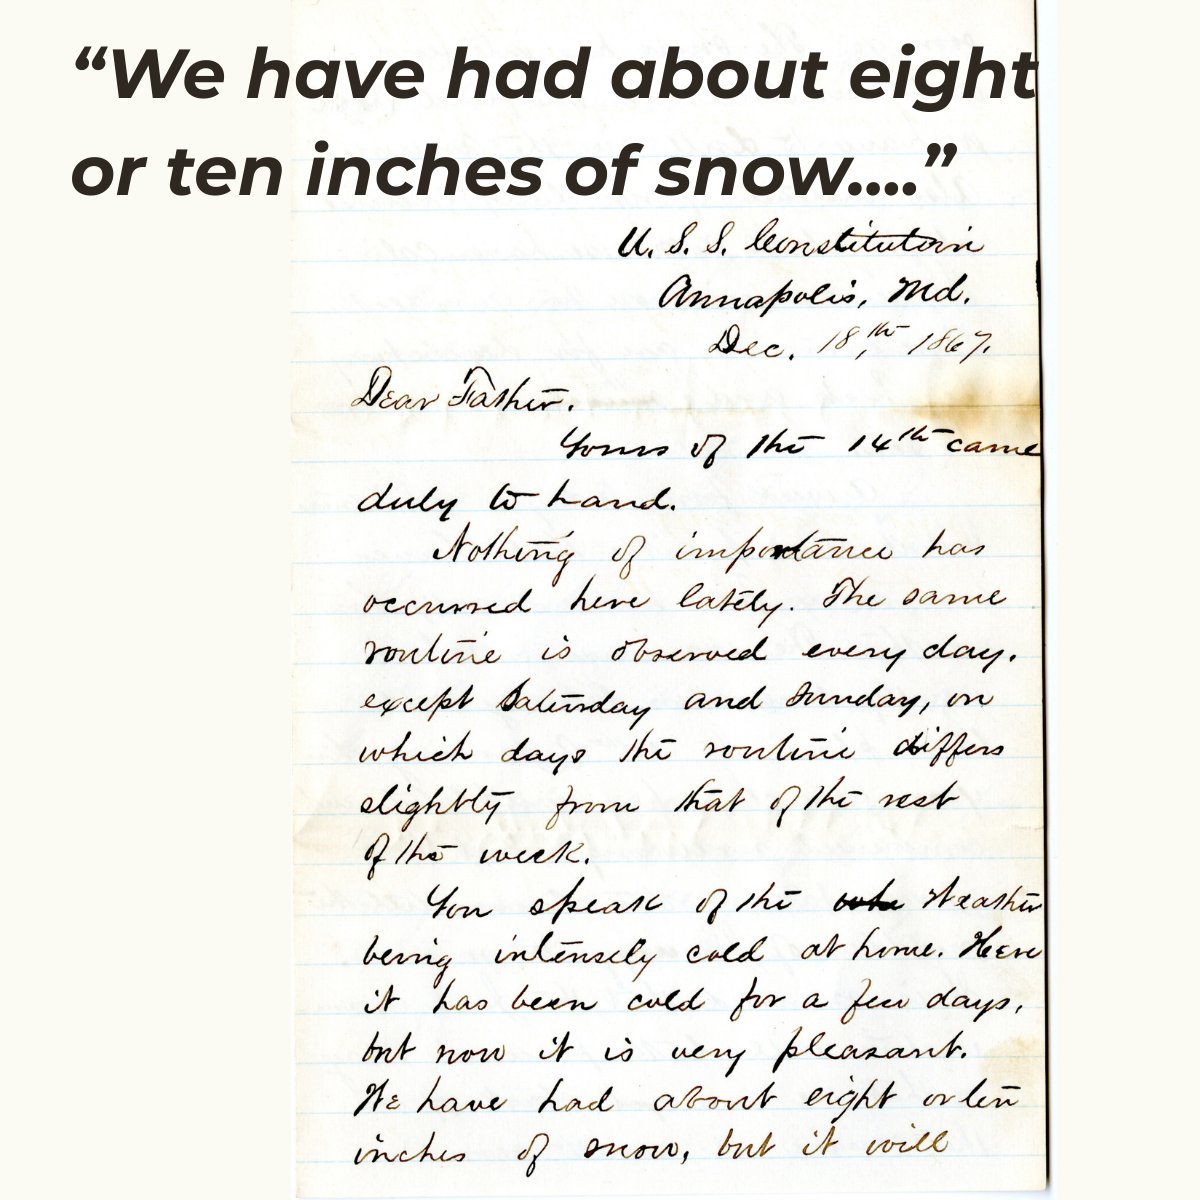 “We have had about eight
or ten inches of snow....”
U. S. S. Constitution
Annapolis, Md.
Dec. 18,th 1867.
Dear Father.
Yours of the 14th came
duly to hand.
Nothing of importance has
occurred here lately. The same
routine is observed every day,
except Saturday and Sunday, on
which days the routine differs
slightly from that of the rest
of the week.
You speak of the Weather
being intensely cold at home. Here
it has been cold for a few days,
but now it is very pleasant.
We have had about eight or ten
inches of snow, but it will